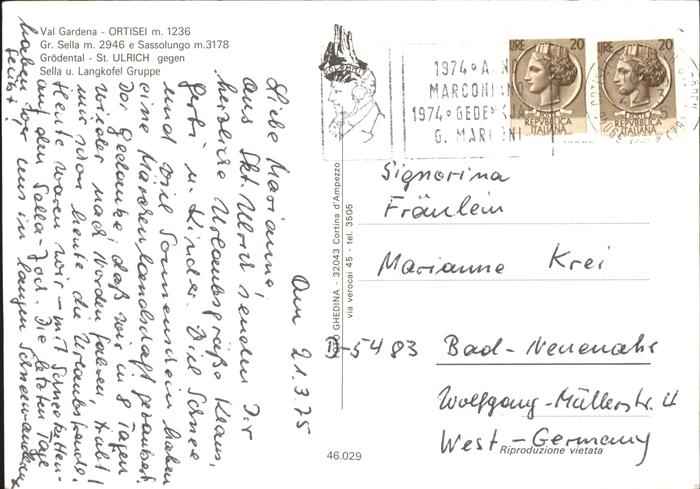 Val Gardena - ORTISEI m. 1236
Gr. Sella m. 2946 e Sassolungo m.3178
Grödental - St. ULRICH gegen
Sella u. Langkofel Gruppe
Am 21.3.75
Liebe Marianne,
aus Skt. Ulrich senden Dir
herzliche Urlaubsgrüße Klaus,
Gerti u. Kinder. Viel Schnee
und viel Sonnenschein haben
eine Märchenlandschaft gezaubert.
Der Gedanke, daß wir in 8 Tagen
wieder nach Norden fahren, trübt
nur schon heute die Urlaubsfreude.
Heute waren wir - mit Schneeketten -
auf dem Sella-Joch. Die letzten Tage
haben wir uns im langen
geübt!
FOTO GHEDINA - 32043 Cortina d'Ampezzo
via verocai 45 - tel. 3505
1974 ANNO
MARCONIANO
1974 GEDENKJAHR
G. MARCONI
LIRE 20
REPVBBLICA
ITALIANA
LIRE 20
REPVBBLICA
ITALIANA
Signorina
Fräulein
Marianne Krei
D-5483 Bad-Neuenahr
Wolfgang-Müllerstr. 11
West-Germany
Riproduzione vietata
46.029